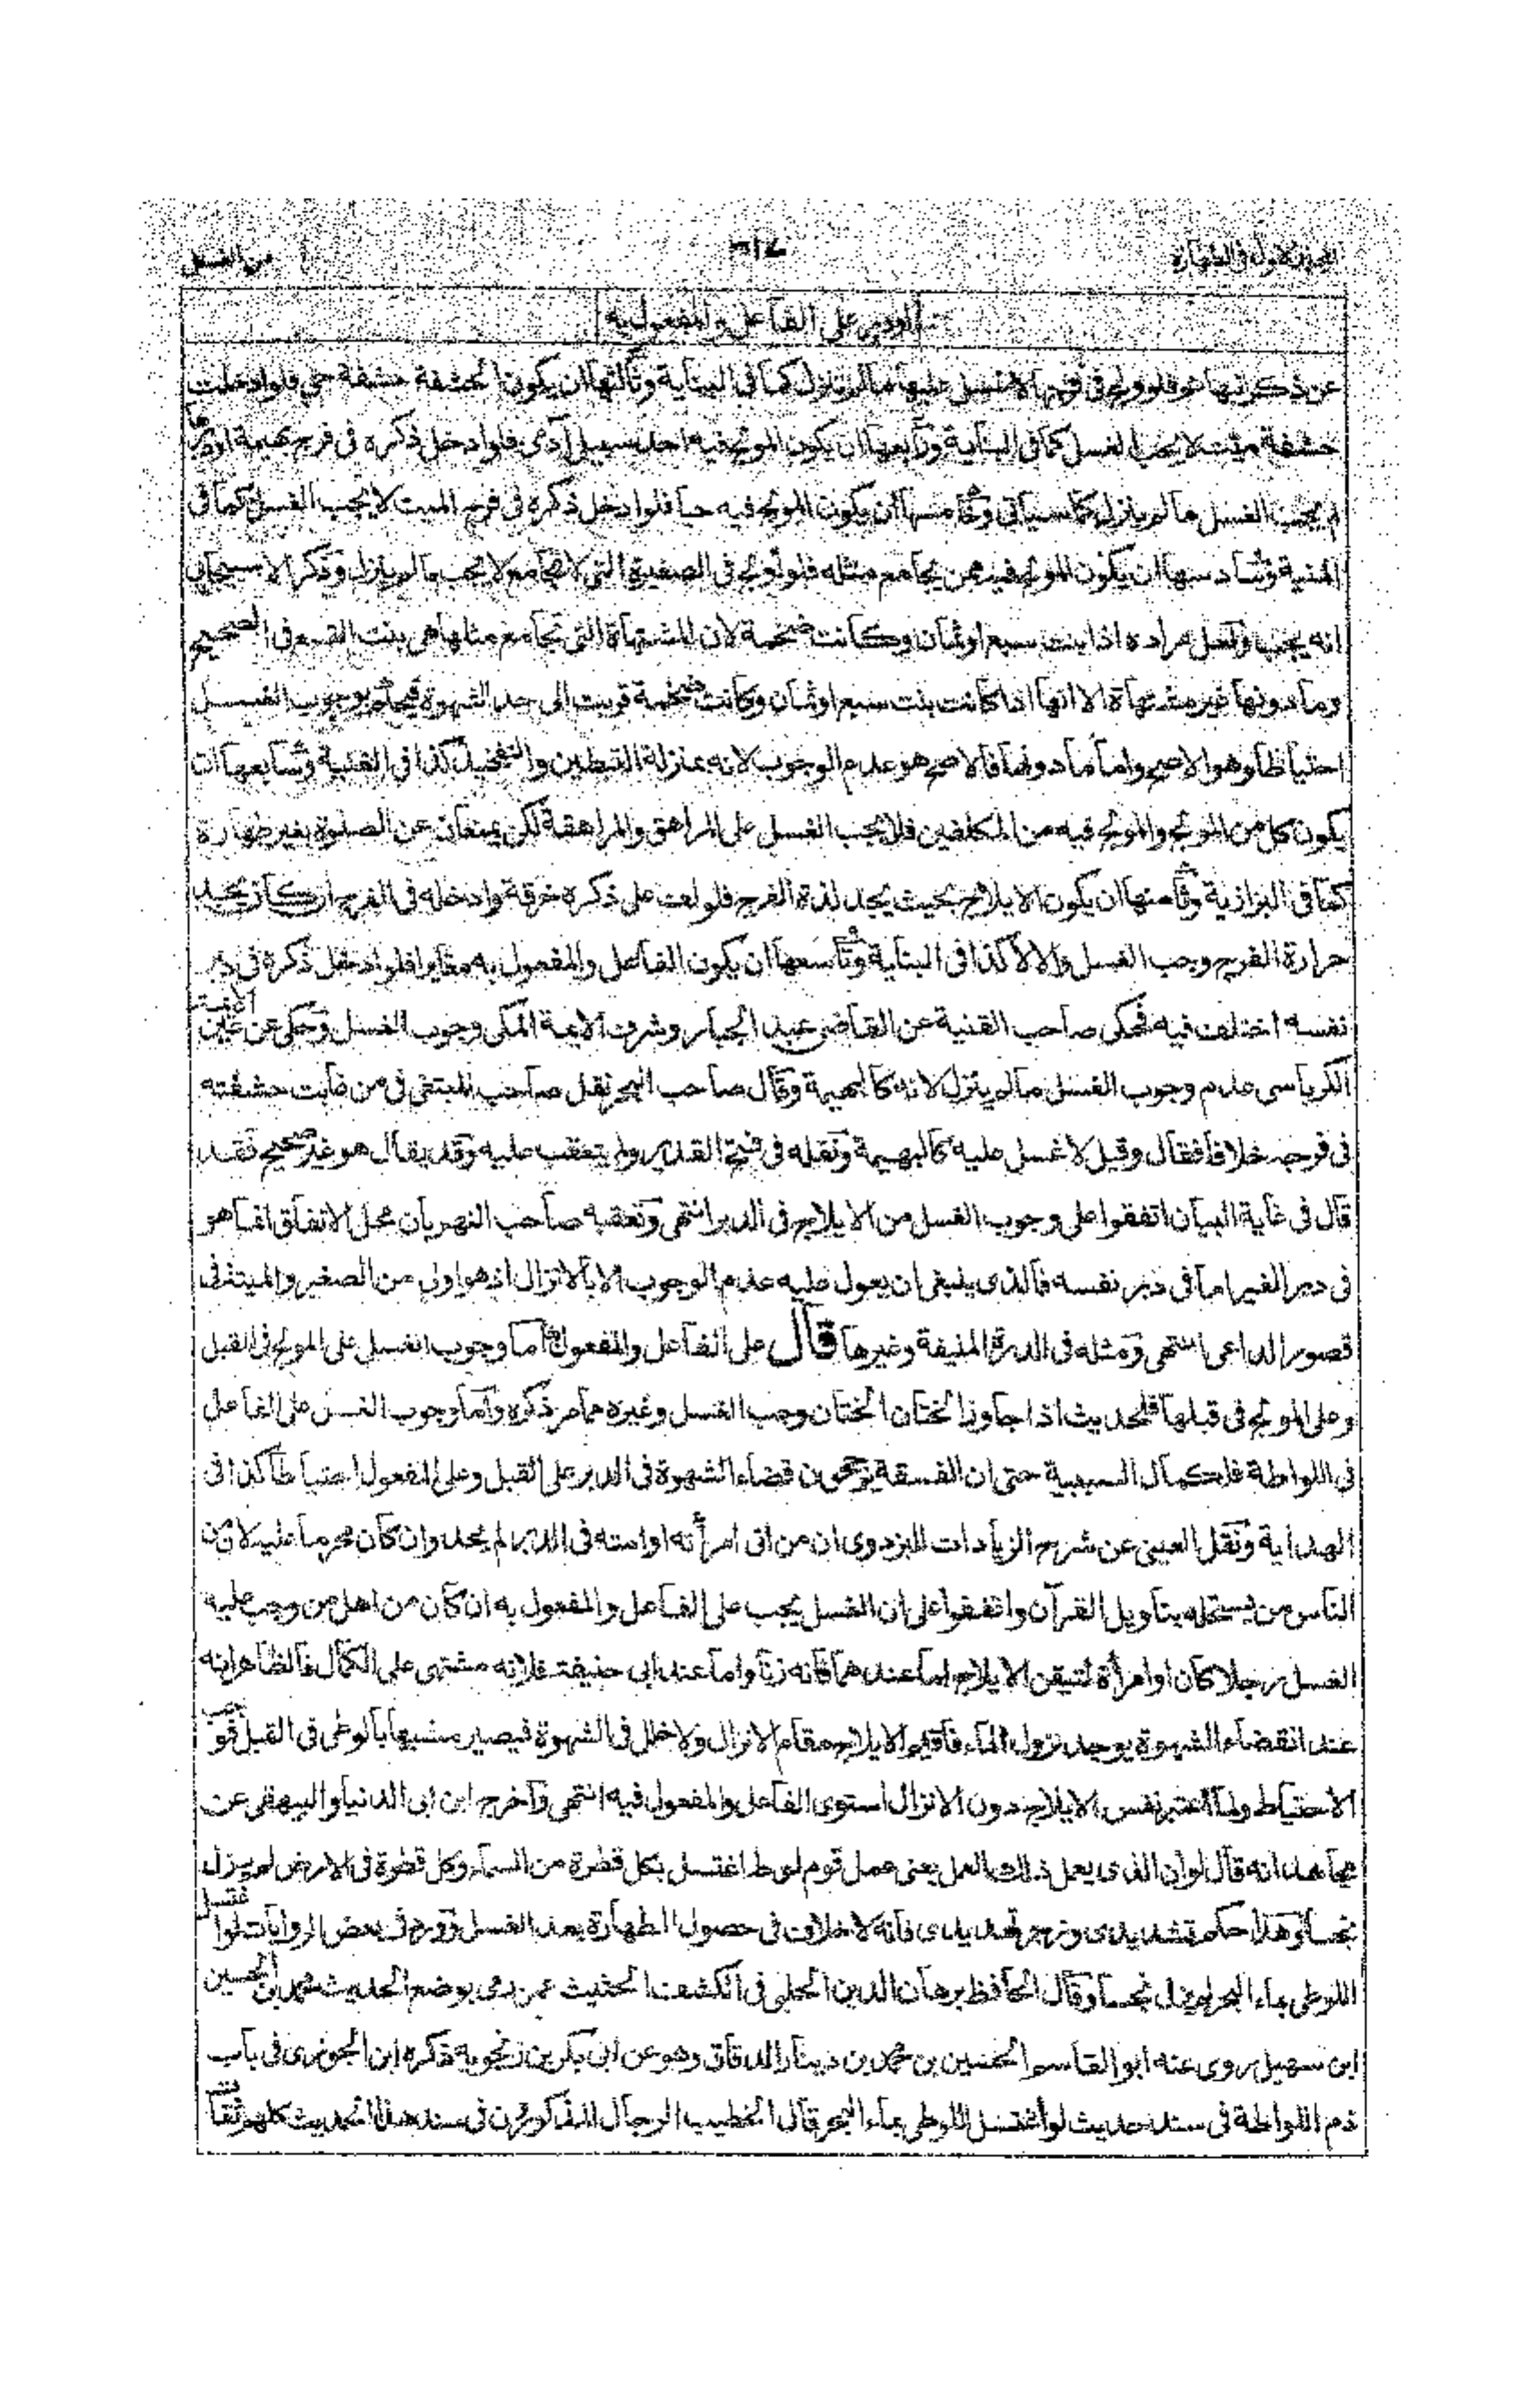 الجزء الاول فى الطهارة
من الغسل
او دبر على الفاعل والمفعول به
فلو اولج فى فرجها لا غسل عليها ما لم ينزل كما فى البناية وثالثها ان يكون الحشفة حشفة حي فلو ادخلت
حشفة ميت لا يجب الغسل كما فى البناية ورابعها ان يكون المولج فيه احد سبيلى آدمى فلو ادخل ذكره فى فرج بهيمة او دبرها
لم يجب الغسل ما لم ينزل كما سيأتى وخامسها ان يكون المولج فيه حيا فلو ادخل ذكره فى فرج الميت لا يجب الغسل كما فى
المنية وسادسها ان يكون المولج فيه ممن يجامع مثله فلو اولج فى الصغيرة التى لا تجامع لا يجب ما لم ينزل وذكر الاسبيجابى
انه يجب ولعل مراده اذا بنت سبع او ثمان وكانت ضخمة لان المشتهاة التى تجامع مثلها هى بنت التسع فى الصحيح
وما دونها غير مشتهاة الا انها اذا كانت بنت سبع او ثمان وكانت ضخمة قربت الى حد الشهوة فيحكم بوجوب الغسل
احتياطا وهو الاصح واما ما دونها فالاصح هو عدم الوجوب لانه بمنزلة التبطين والتفخيذ كذا فى الغنية وسابعها ان
يكون كل من المولج والمولج فيه من المكلفين فلا يجب الغسل على المراهق والمراهقة لكن يمنعان عن الصلوة بغير طهارة
كما فى البزازية وثامنها ان يكون الايلاج بحيث يجد لذة الفرج فلو لف على ذكره خرقة وادخله فى الفرج ان كان يجد
حرارة الفرج وجب الغسل والا لا كذا فى البناية وتاسعها ان يكون الفاعل والمفعول به مغايرا فلو ادخل ذكره فى دبر
نفسه اختلف فيه فحكى صاحب القنية عن القاضى عبد الجبار وشرف الائمة المكى وجوب الغسل وحكى عن عين الائمة
الكرباسى عدم وجوب الغسل ما لم ينزل لانه كالبهيمة وقال صاحب البحر نقل صاحب المبتغى فى من غابت حشفته
فى فرجه خلافا فقال وقيل لا غسل عليه كالبهيمة ونقله فى فتح القدير ولم يتعقب عليه وقد يقال هو غير صحيح فقد
قال فى غاية البيان اتفقوا على وجوب الغسل من الايلاج فى الدبر انتهى وتعقبه صاحب النهر بان محل الاتفاق انما هو
فى دبر الغير اما فى دبر نفسه فالذى ينبغى ان يعول عليه عدم الوجوب الا بالانزال اذ هو اولى من الصغير والميت فى
قصور الداعى انتهى ومثله فى الدرة المنيفة وغيرها قال على الفاعل والمفعول به اما وجوب الغسل على المولج فى القبل
وعلى المولج فى قبلها فلحديث اذا جاوز الختان الختان وجب الغسل وغيره مما مر ذكره واما وجوب الغسل على الفاعل
فى اللواطة فلكمال السببية حتى ان الفسقة يرجحون قضاء الشهوة فى الدبر على القبل وعلى المفعول احتياطا كذا فى
الهداية ونقل العينى عن شرح الزيادات للبزدوى ان من اتى امرأته او امته فى الدبر لم يحد وان كان محرما عليه لان من
الناس من يستحله بتأويل القرآن واتفقوا على ان الغسل يجب على الفاعل والمفعول به ان كان من اهل من وجب عليه
الغسل رجلا كان او امرأة لتيقن الايلاج اما عندهما فانه زنا واما عند ابى حنيفة فلانه مشتهى على الكمال فالظاهر انه
عند انقضاء الشهوة يوجد نزول الماء فاقيم الايلاج مقام الانزال ولا خلل فى الشهوة فيصير مشبها بالوطى فى القبل فوجب
الاحتياط ولما اعتبر نفس الايلاج دون الانزال استوى الفاعل والمفعول فيه انتهى واخرج ابن ابى الدنيا والبيهقى عن
مجاهد انه قال لو ان الذى يعمل ذلك العمل يعنى عمل قوم لوط اغتسل بكل قطرة من السماء وكل قطرة فى الارض لم يزل
نجسا وهذا حكم تشديدى وزجر تهديدى فانه لا خلاف فى حصول الطهارة بعد الغسل وورد فى بعض الروايات لو اغتسل
اللوطى بماء البحر لم يزل نجسا وقال الحافظ برهان الدين الحلبى فى الكشف الحثيث عمن رمى بوضع الحديث محمد بن الحسين
ابن سهيل روى عنه ابو القاسم الحسين بن محمد بن دينار الدقاق وهو عن ابى بكر بن زنجويه ذكره ابن الجوزى فى باب
ذم اللواطة فى سند حديث لو اغتسل اللوطى بماء البحر قال الخطيب الرجال المذكورون فى سند هذا الحديث كلهم ثقات